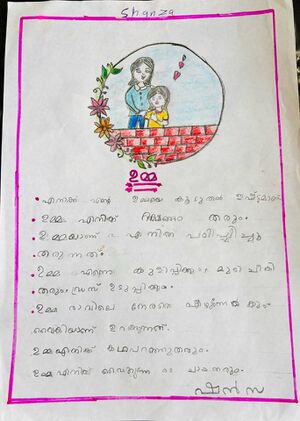 Shanza
ഉമ്മ
എനിക്ക് എന്റെ ഉമ്മയെ കൂടുതൽ ഇഷ്ടമാണ്
ഉമ്മ എനിക്ക് ഭക്ഷണം തരും.
ഉമ്മയാണ് എനിക്ക് പഠിപ്പിച്ചു
തരുന്നത്.
ഉമ്മ എന്നെ കുളിപ്പിക്കും മുടി ചീകി
തരും ഡ്രസ് ഉടുപ്പിക്കും.
ഉമ്മ രാവിലെ നേരത്തെ എഴുന്നേൽക്കും
വൈകിയാണ് ഉറങ്ങുന്നത്.
ഉമ്മ എനിക്ക് കഥ പറഞ്ഞുതരും.
ഉമ്മ എനിക്ക് വൈകുന്നേരം ചായ തരും.
ഷൻസ